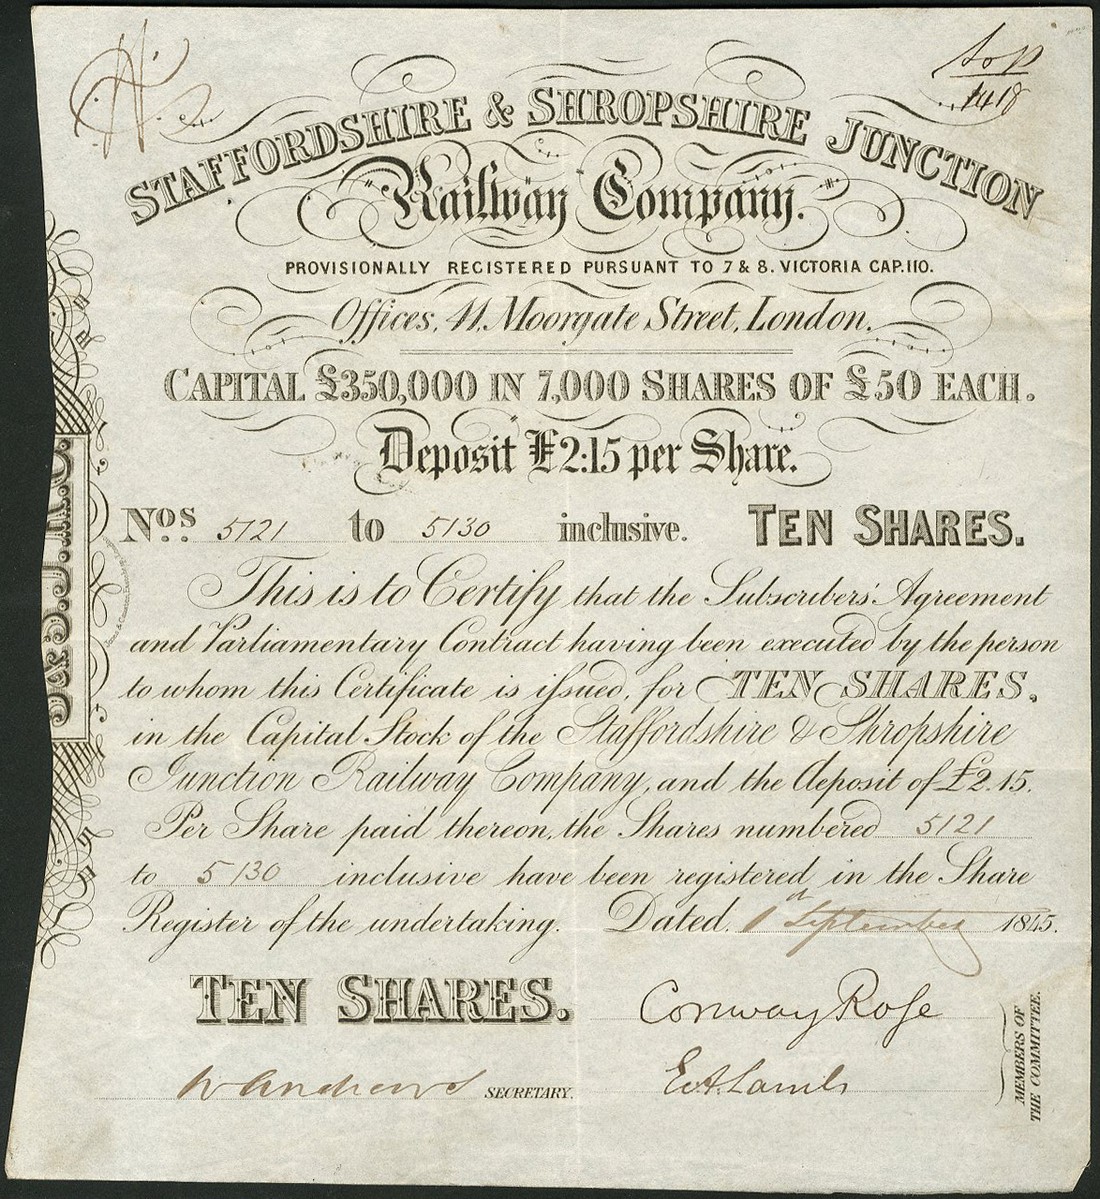 top
1418
STAFFORDSHIRE & SHROPSHIRE JUNCTION
Railway Company.
PROVISIONALLY REGISTERED PURSUANT TO 7 & 8. VICTORIA CAP. 110.
Offices, 41, Moorgate Street, London.
CAPITAL £350,000 IN 7,000 SHARES OF £50 EACH.
Deposit £2:15 per Share.
Nos 5121 to 5130 inclusive. TEN SHARES.
This is to Certify that the Subscribers' Agreement
and Parliamentary Contract having been executed by the person
to whom this Certificate is issued, for TEN SHARES,
in the Capital Stock of the Staffordshire & Shropshire
Junction Railway Company, and the deposit of £2.15.
Per Share paid thereon, the Shares numbered 5121
to 5130 inclusive have been registered in the Share
Register of the undertaking. Dated. 1st September 1845.
TEN SHARES. Conway Rose
W Andrews SECRETARY. E A Lamb
MEMBERS OF
THE COMMITTEE.
S&S.J.R.C.